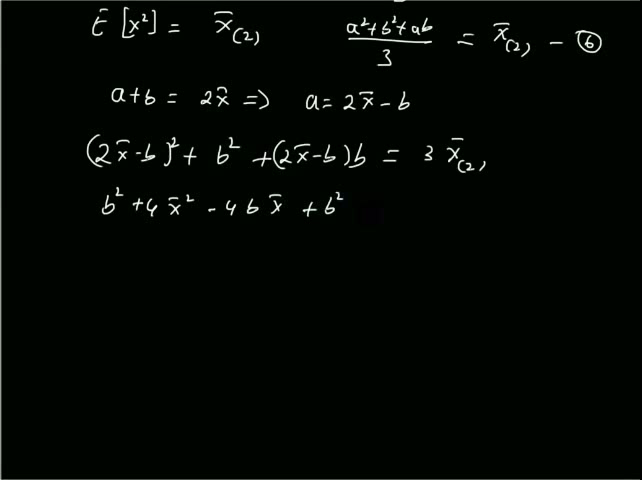 E [x²] = x̄₍₂₎   (a²+b²+ab)/3 = x̄₍₂₎ — ⑥
a+b = 2x̄ => a = 2x̄ - b
(2x̄-b)² + b² + (2x̄-b)b = 3 x̄₍₂₎
b² + 4x̄² - 4bx̄ + b²